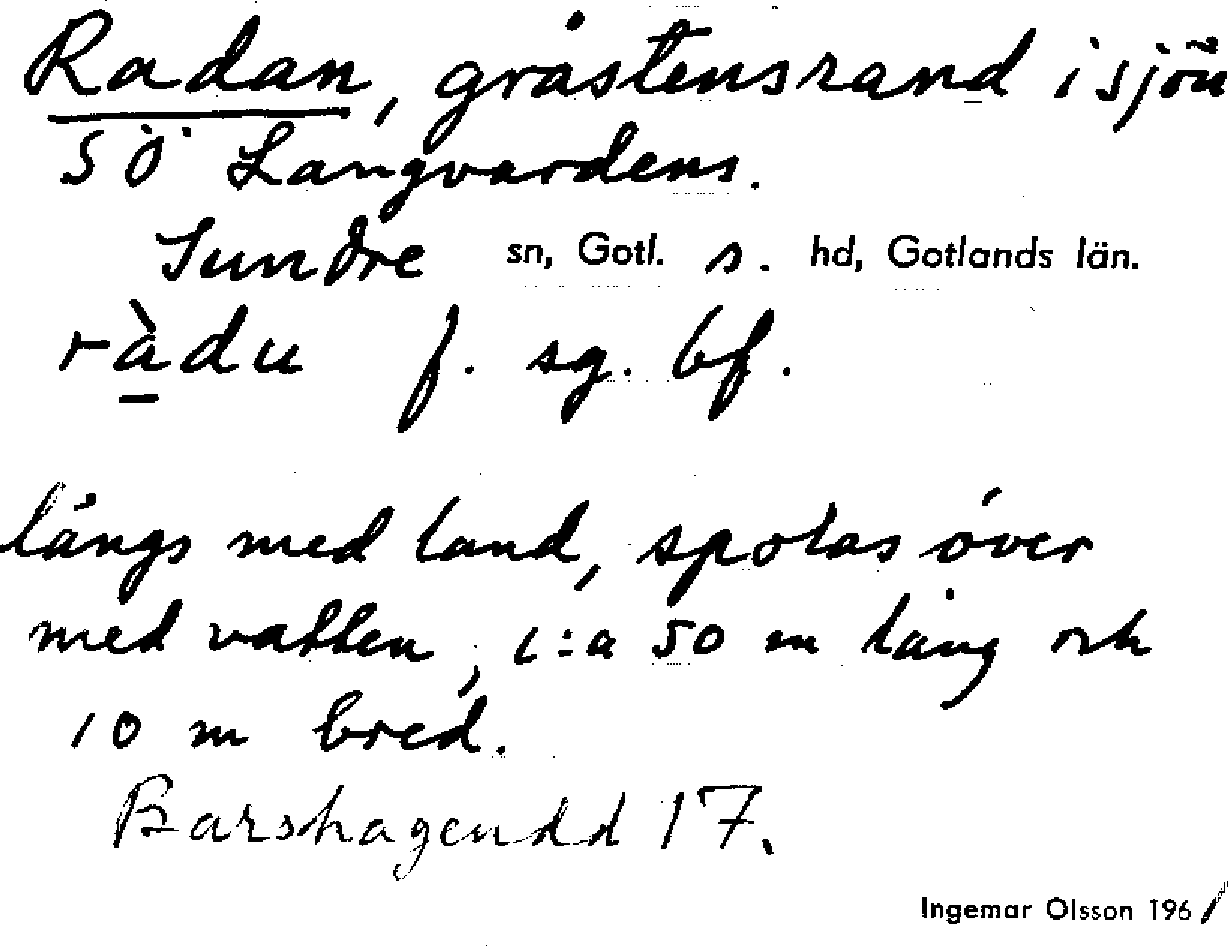 Radan, gråstensrand i sjön
SÖ Langvardens.
Sundre sn, Gotl. s. hd, Gotlands län.
ràdu f. sg. bf.
längs med land, spolas över
med vatten, c:a 50 m lång och
10 m bred.
Barshageudd 17.
Ingemar Olsson 1961